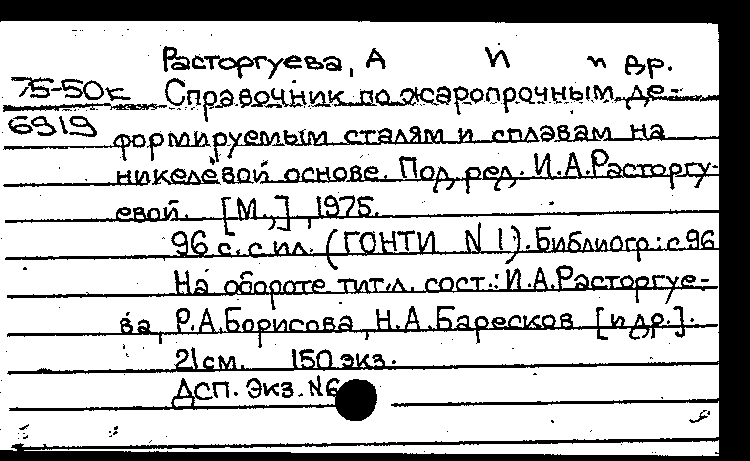 Расторгуева, А И и др.
75-50к Справочник по жаропрочным де-
6919 формируемым сталям и сплавам на
никелевой основе. Под ред. И.А.Расторгу-
евой. [М.,] ,1975.
96 с. с ил. (ГОНТИ N 1). Библиогр: с 96
На обороте тит.л. сост.: И.А.Расторгуе-
ва, Р.А.Борисова, Н.А.Баресков [и др.].
21 см. 150 экз.
ДСП. Экз. N6